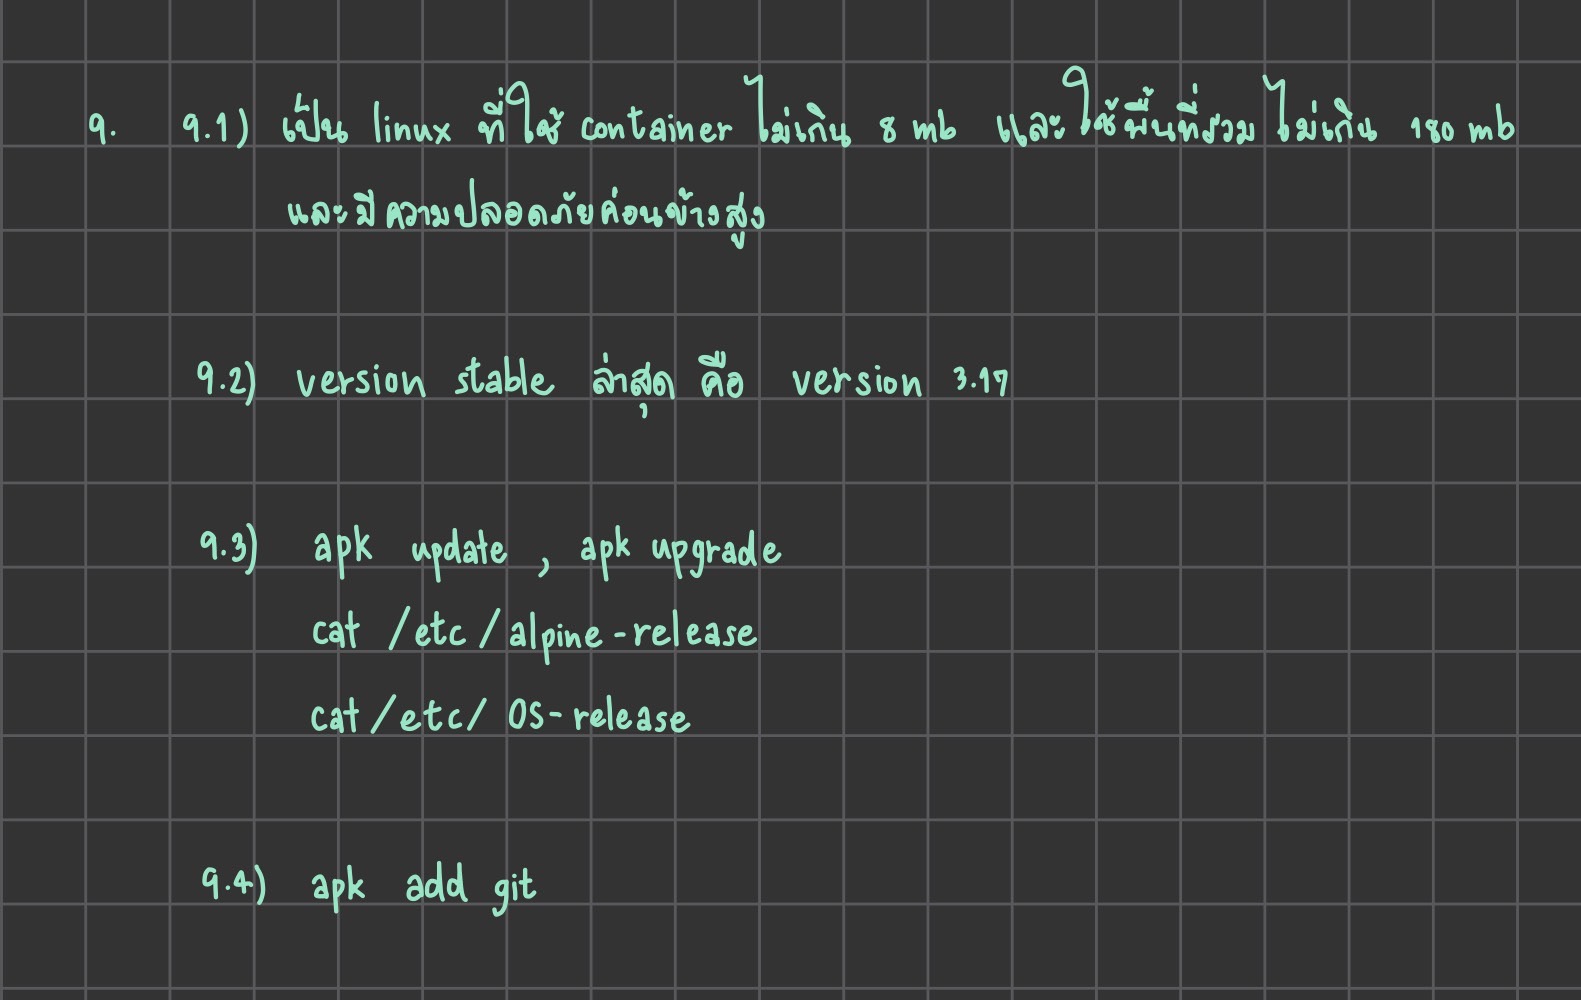 9. 9.1) เป็น linux ที่ใช้ container ไม่เกิน 8 mb และใช้พื้นที่รวมไม่เกิน 180 mb
และมีความปลอดภัยค่อนข้างสูง
9.2) version stable ล่าสุด คือ version 3.17
9.3) apk update , apk upgrade
cat /etc/alpine-release
cat/etc/ OS-release
9.4) apk add git